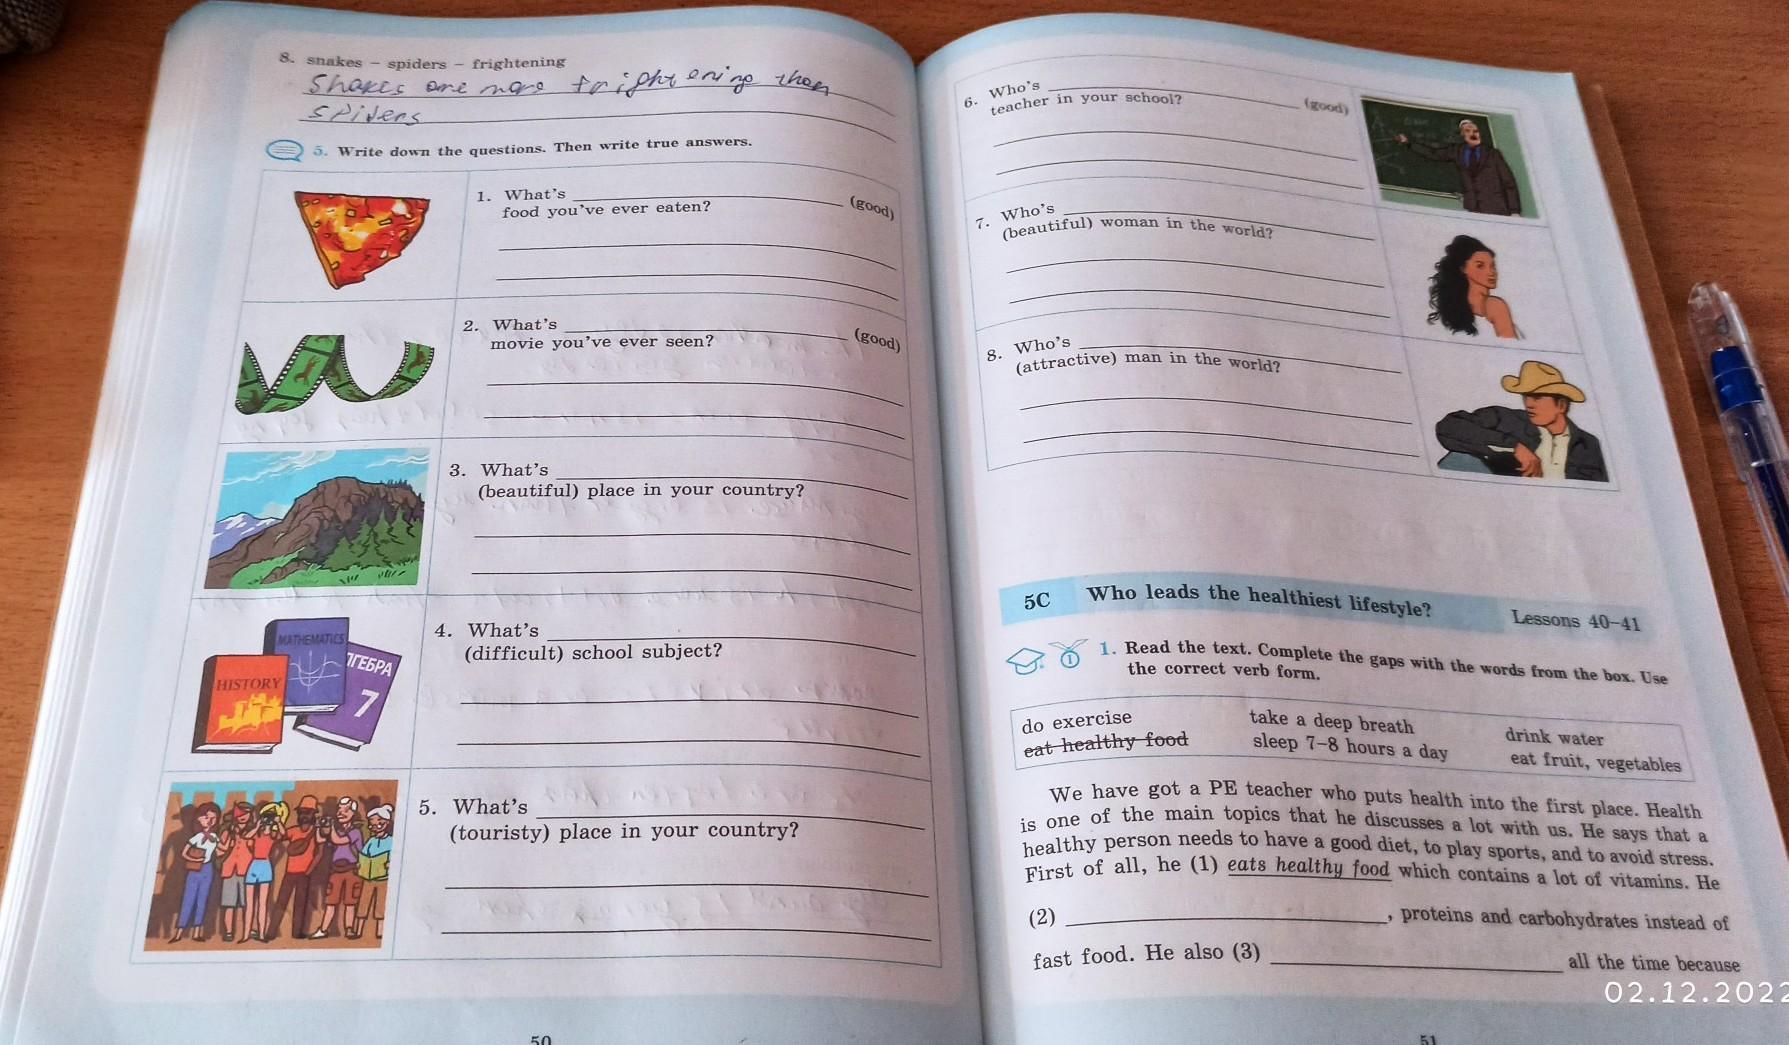 8. snakes – spiders – frightening
Snakes are more frightening than
spiders
5. Write down the questions. Then write true answers.
1. What's ____ (good)
food you've ever eaten?
2. What's ____ (good)
movie you've ever seen?
3. What's ____
(beautiful) place in your country?
MATHEMATICS
HISTORY
ЛГЕБРА
7
4. What's ____
(difficult) school subject?
5. What's ____
(touristy) place in your country?
50
6. Who's ____ (good)
teacher in your school?
7. Who's ____
(beautiful) woman in the world?
8. Who's ____
(attractive) man in the world?
5C Who leads the healthiest lifestyle? Lessons 40–41
1. Read the text. Complete the gaps with the words from the box. Use
the correct verb form.
do exercise take a deep breath drink water
eat healthy food sleep 7–8 hours a day eat fruit, vegetables
We have got a PE teacher who puts health into the first place. Health
is one of the main topics that he discusses a lot with us. He says that a
healthy person needs to have a good diet, to play sports, and to avoid stress.
First of all, he (1) eats healthy food which contains a lot of vitamins. He
(2) ____, proteins and carbohydrates instead of
fast food. He also (3) ____ all the time because
02.12.2022
51